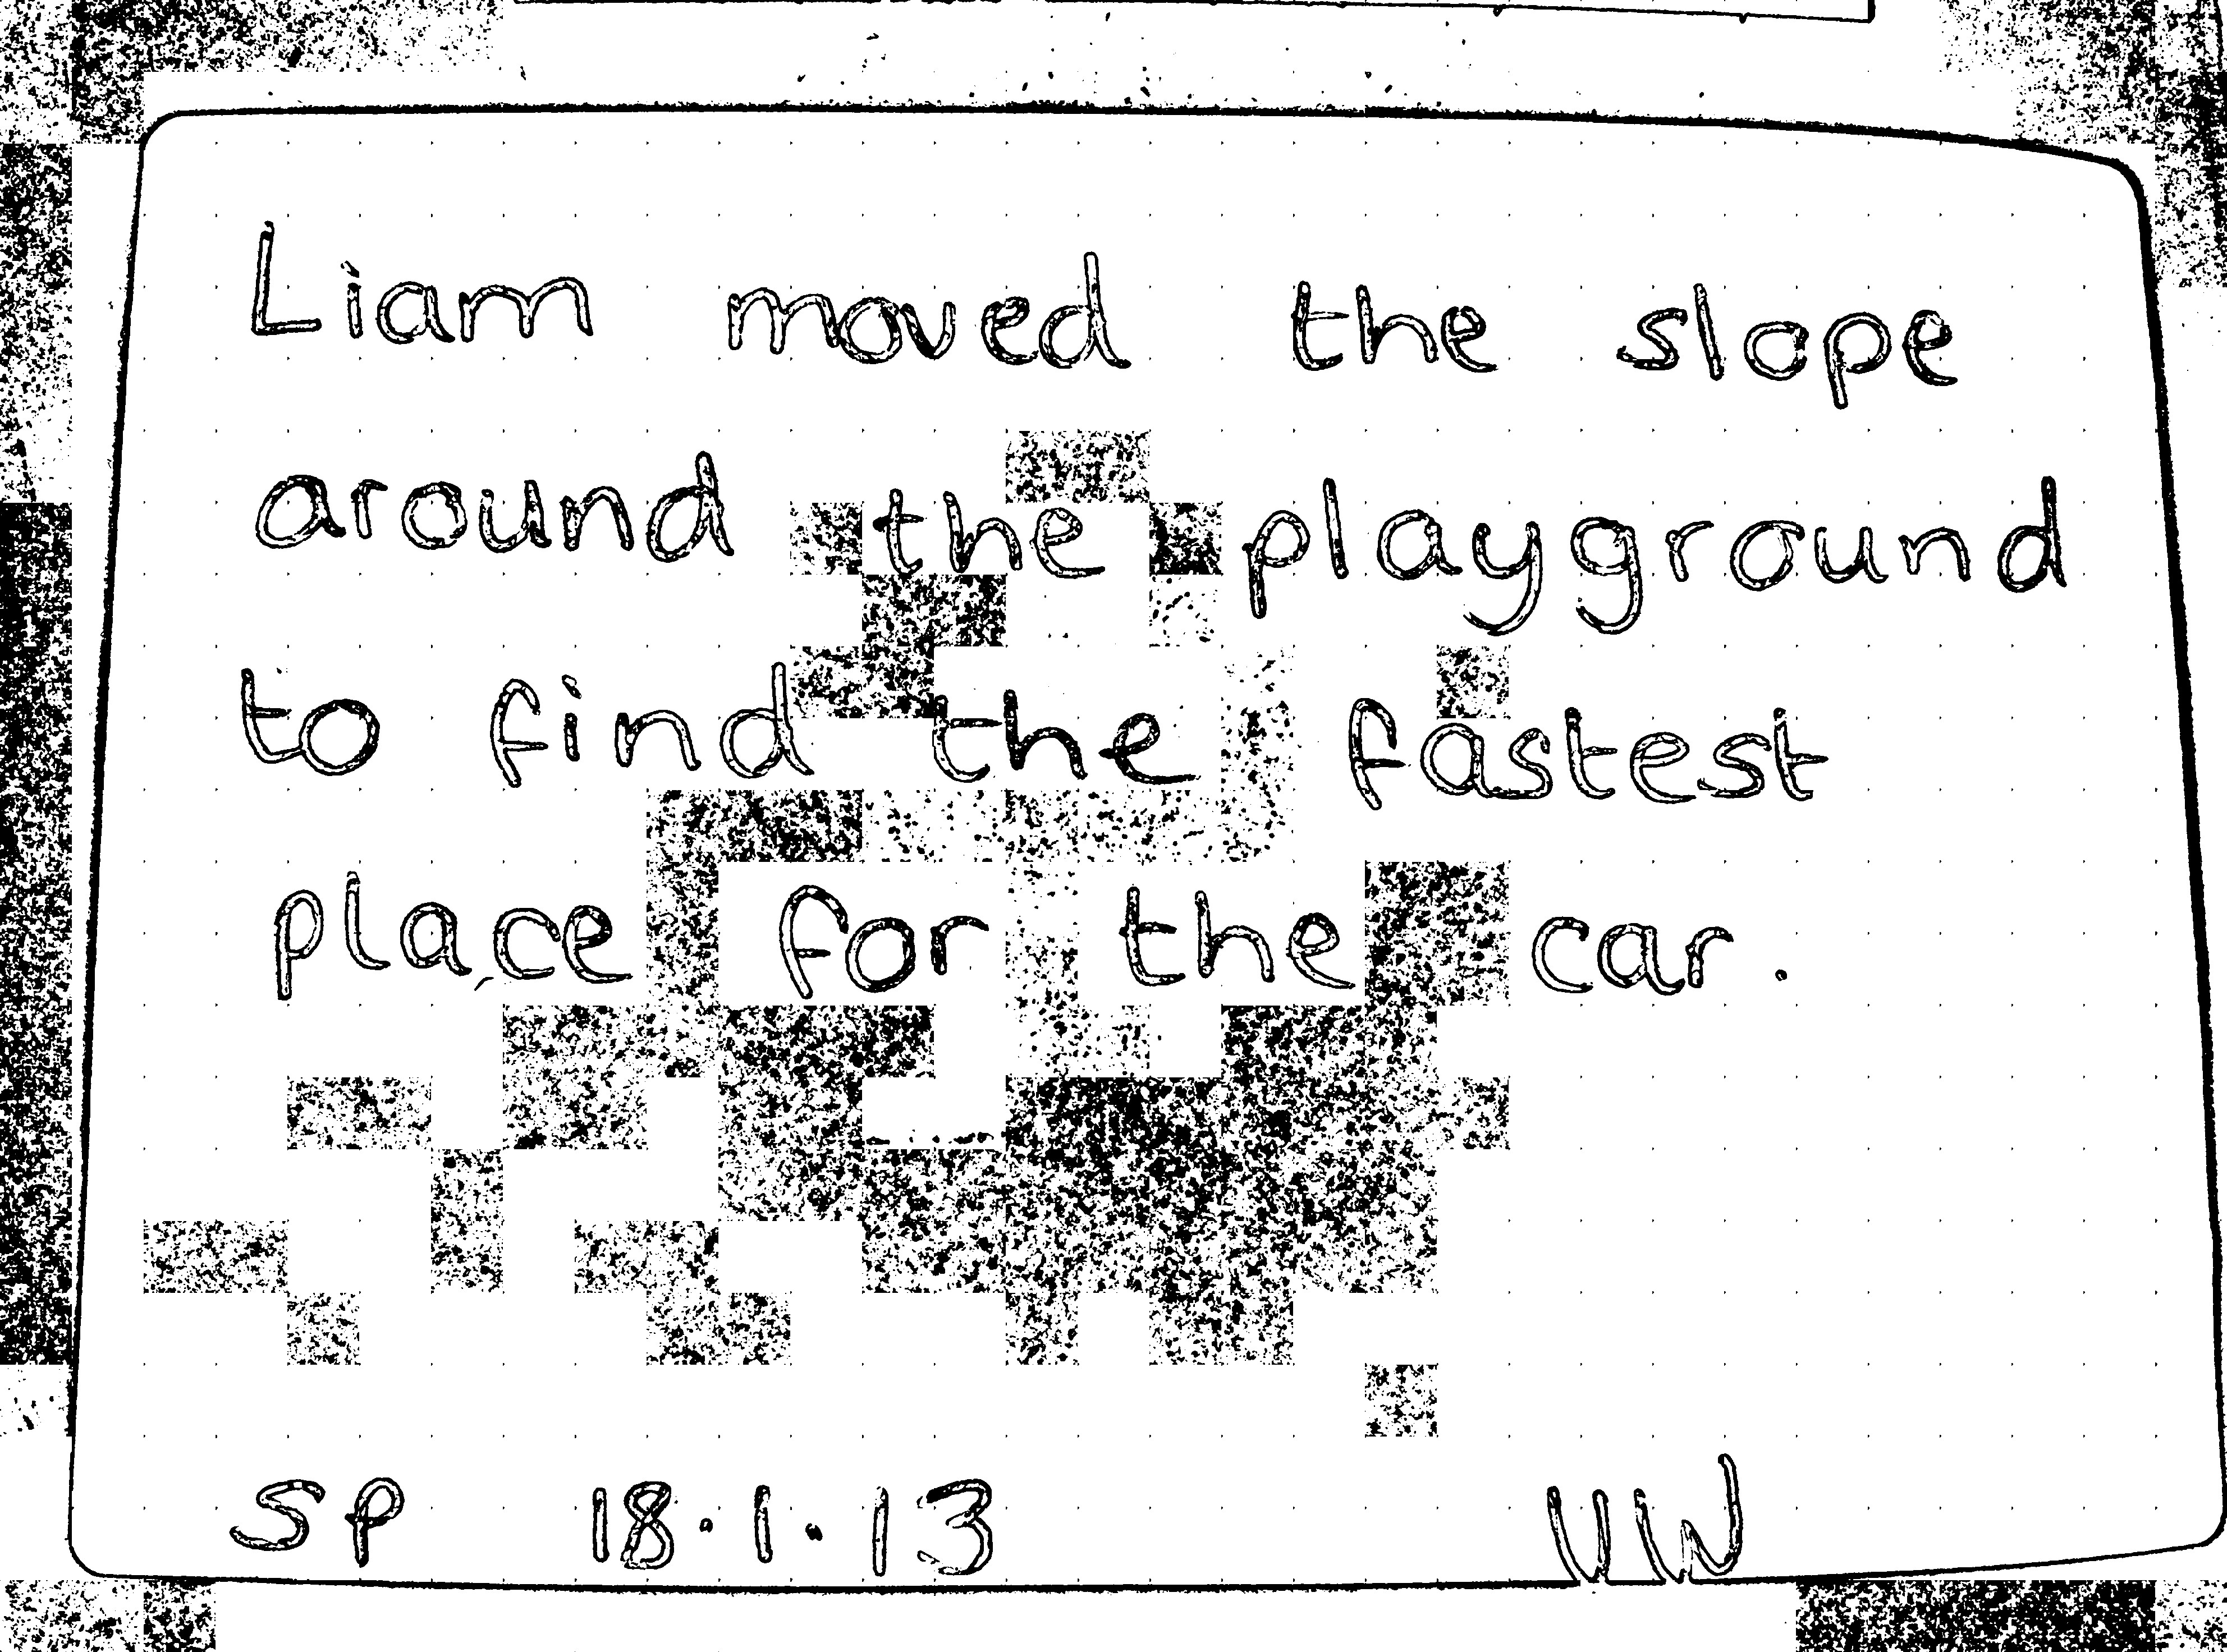 Liam moved the slope
around the playground
to find the fastest
place for the car.
SP 18.1.13 UW